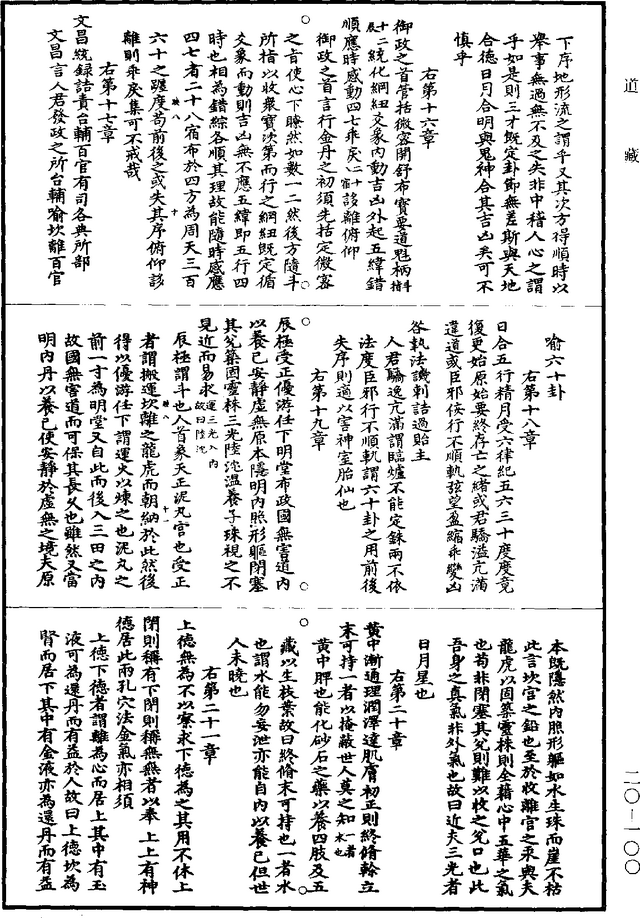 道藏
下序地形流之謂乎又其次方得順時以
舉事無過無不及之失非中稽人心之謂
乎如是則三才既定卦節無差斯與天地
合德日月合明與鬼神合其吉凶矣可不
慎乎
右第十六章
御政之首管括微密開舒布寶要道魁柄
統化綱紐爻象內動吉凶外起五緯錯
順應時感動四七乖戾誃離俯仰
御政之首言行金丹之初須先括定微密
之旨使心下瞭然如數一二然後方隨斗
所指以收衆寶次第而行之綱紐既定循
爻象而動則吉凶無不應五緯即五行四
時也相為錯綜各順其理故能隨時感應
四七者二十八宿布於四方為周天三百
六十之躔度苟前後之或失其序俯仰誃
離則乖戾集可不戒哉
右第十七章
文昌統録詰責台輔百官有司各典所部
文昌言人君發政之所台輔喻坎離百官
喻六十卦
右第十八章
日合五行精月受六律紀五六三十度度竟
復更始原始要終存亡之緒或君驕溢亢滿
違道或臣邪佞行不順軌弦望盈縮乖變凶
咎執法譏刺詰過貽主
人君驕逸亢滿謂臨爐不能定銖兩不依
法度臣邪行不順軌謂六十卦之用前後
失序則過以害神室胎仙也
右第十九章
辰極受正優游任下明堂布政國無害道內
以養己安靜虛無原本隱明內照形軀閉塞
其兊築固靈株三光陸沈溫養子珠視之不
見近而易求
辰極謂斗也人首象天正泥丸宮也受正
者謂搬運坎離之龍虎而朝納於此然後
得以優游任下謂運火以煉之也泥丸之
前一寸為明堂又自此而後入三田之內
故國無害道而可保其長久也雖然又當
明內丹以養己使安靜於虛無之境夫原
本既隱然內照形軀如水生珠而崖不枯
此言坎宮之鉛也至於收離宮之汞與夫
龍虎以固築靈株則全藉心中五華之氣
也苟非閉塞其兊則難以收之兊口也此
吾身之真氣非外氣也故曰近夫三光者
日月星也
右第二十章
黃中漸通理潤澤達肌膚初正則終脩幹立
末可持一者以掩蔽世人莫之知
黃中脾也能化砂石之藥以養四肢及五
藏以生枝葉故曰終脩末可持也一者水
也謂水能勿妄泄亦能自內以養己但世
人未曉也
右第二十一章
上德無為不以察求下德為之其用不休上
閉則稱有下閉則稱無無者以奉上上有神
德居此兩孔穴法金氣亦相須
上德下德者謂離為心而居上其中有玉
液可為還丹而有益於人故曰上德坎為
腎而居下其中有金液亦為還丹而有益
二〇-一〇〇